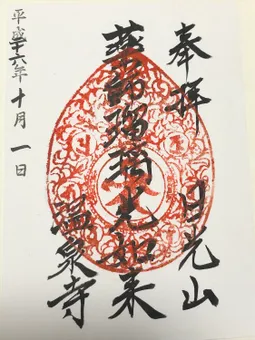 奉拝 日光山
薬師瑠璃光如来
温泉寺
平成十六年十月一日